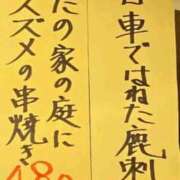 車ではねた鹿刺
たの家の庭に
スズメの串焼き
480